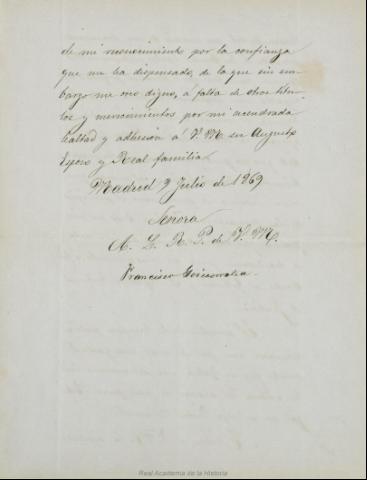 de mi reconocimiento por la confianza
que me ha dispensado, de la que sin em-
bargo me creo digno, á falta de otros titu-
los y merecimientos por mi acendrada
lealtad y adhesion á V. M. su Augusto
Esposo y Real familia.
Madrid 9 Julio de 1869
Señora
A. L. R. P. de V. M.
Francisco
Real Academia de la Historia